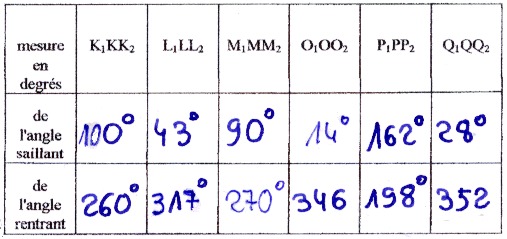 mesure en degrés K₁KK₂ L₁LL₂ M₁MM₂ O₁OO₂ P₁PP₂ Q₁QQ₂
de l'angle saillant 100° 43° 90° 14° 162° 28°
de l'angle rentrant 260° 317° 270° 346 198° 352